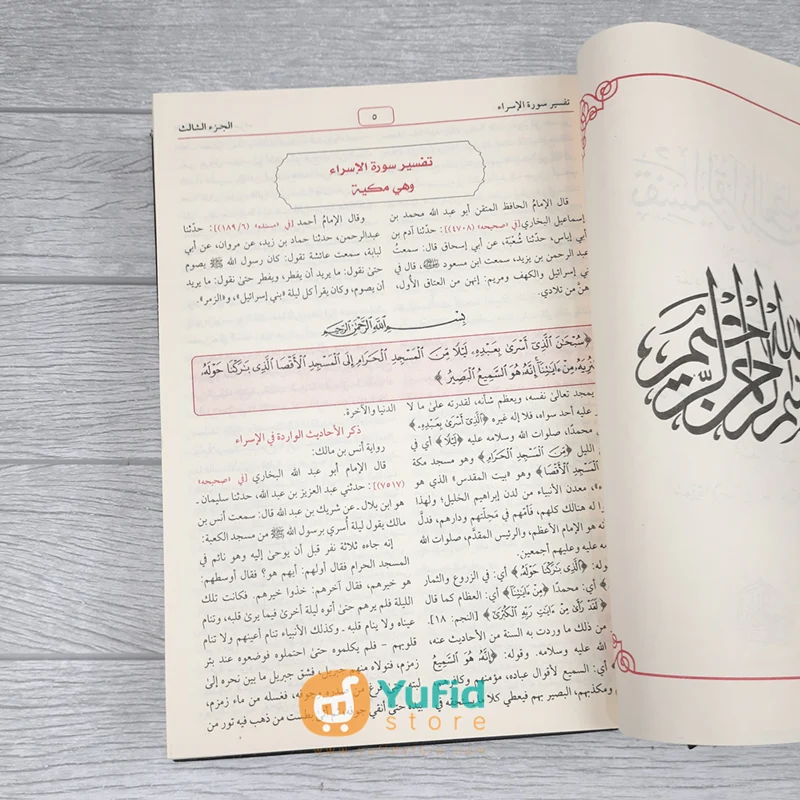 تفسير سورة الإسراء
٥
الجزء الثالث
تفسير سورة الإسراء
وهي مكية
قال الإمامُ الحافظ المتقن أبو عبد الله محمد بن
إسماعيل البخاري [في «صحيحه» (٤٧٠٨)]: حدّثنا آدم بن
أبي إياس، حدّثنا شُعْبَة، عن أبي إسحاق قال: سمعتُ
عبد الرحمن بن يزيد، سمعت ابن مسعود ﷺ، قال في
بني إسرائيل والكهف ومريم: إنهن من العتاق الأول،
هنَّ من تلادي.
وقال الإمامُ أحمد [في «مسنده» (١٨٩/٦)]: حدّثنا
عبدالرحمن، حدثنا حماد بن زيد، عن مروان، عن أبي
لبابة، سمعت عائشة تقول: كان رسول الله ﷺ يصوم
حتى نقول: ما يريد أن يفطر، ويفطر حتى نقول: ما يريد
أن يصوم، وكان يقرأ كل ليلة «بني إسرائيل»، و«الزمر».
بِسْمِ اللَّهِ الرَّحْمَٰنِ الرَّحِيمِ
﴿سُبْحَٰنَ ٱلَّذِىٓ أَسْرَىٰ بِعَبْدِهِۦ لَيْلًا مِّنَ ٱلْمَسْجِدِ ٱلْحَرَامِ إِلَى ٱلْمَسْجِدِ ٱلْأَقْصَا ٱلَّذِى بَٰرَكْنَا حَوْلَهُۥ
لِنُرِيَهُۥ مِنْ ءَايَٰتِنَآ إِنَّهُۥ هُوَ ٱلسَّمِيعُ ٱلْبَصِيرُ﴾
يمجد تعالى نفسه، ويعظم شأنه، لقدرته على ما لا
عليه أحد سواه، فلا إله غيره ﴿ٱلَّذِىٓ أَسْرَىٰ بِعَبْدِهِۦ﴾
محمدًا، صلوات الله وسلامه عليه ﴿لَيْلًا﴾ أي في
الليل ﴿مِّنَ ٱلْمَسْجِدِ ٱلْحَرَامِ﴾ وهو مسجد مكة
ٱلْمَسْجِدِ ٱلْأَقْصَا﴾ وهو «بيت المقدس» الذي هو
معدن الأنبياء من لدن إبراهيم الخليل؛ ولهذا
له هنالك كلهم، فأمّهم في مَحِلّتهم ودارهم، فدلَّ
هو الإمام الأعظم، والرئيس المقدَّم، صلوات الله
عليه وعليهم أجمعين.
﴿ٱلَّذِى بَٰرَكْنَا حَوْلَهُۥ﴾ أي: في الزروع والثمار
أي: محمدًا ﴿مِنْ ءَايَٰتِنَآ﴾ أي: العظام كما قال
﴿لَقَدْ رَأَىٰ مِنْ ءَايَٰتِ رَبِّهِ ٱلْكُبْرَىٰٓ﴾ [النجم: ١٨].
من ذلك ما وردت به السنة من الأحاديث عنه،
الله عليه وسلامه. وقوله: ﴿إِنَّهُۥ هُوَ ٱلسَّمِيعُ
أي: السميع لأقوال عباده، مؤمنهم
ومكذبهم، البصير بهم فيعطي
الدنيا والآخرة.
ذكر الأحاديث الواردة في الإسراء
رواية أنس بن مالك:
قال الإمام أبو عبد الله البخاري [في «صحيحه»
(٧٥١٧)]: حدثني عبد العزيز بن عبد الله، حدثنا سليمان ـ
هو ابن بلال ـ عن شريك بن عبد الله قال: سمعت أنس بن
مالك يقول ليلة أُسري برسول الله ﷺ من مسجد الكعبة:
إنه جاءه ثلاثة نفر قبل أن يوحىٰ إليه وهو نائم في
المسجد الحرام فقال أولهم: أيهم هو؟ فقال أوسطهم:
هو خيرهم، فقال آخرهم: خذوا خيرهم. فكانت تلك
الليلة فلم يرهم حتىٰ أتوه ليلة أخرىٰ فيما يرىٰ قلبه، وتنام
عيناه ولا ينام قلبه ـ وكذلك الأنبياء تنام أعينهم ولا تنام
قلوبهم – فلم يكلموه حتىٰ احتملوه فوضعوه عند بئر
زمزم، فتولاه منهم جبريل، فشق جبريل ما بين نحره إلىٰ
لبته حتىٰ فرغ من صدره وجوفه، فغسله من ماء زمزم،
بيده، حتىٰ أنقىٰ جوفه، ثم أتي بطست من ذهب فيه تور من
بسم الله الرحمن الرحيم
YuFid
store